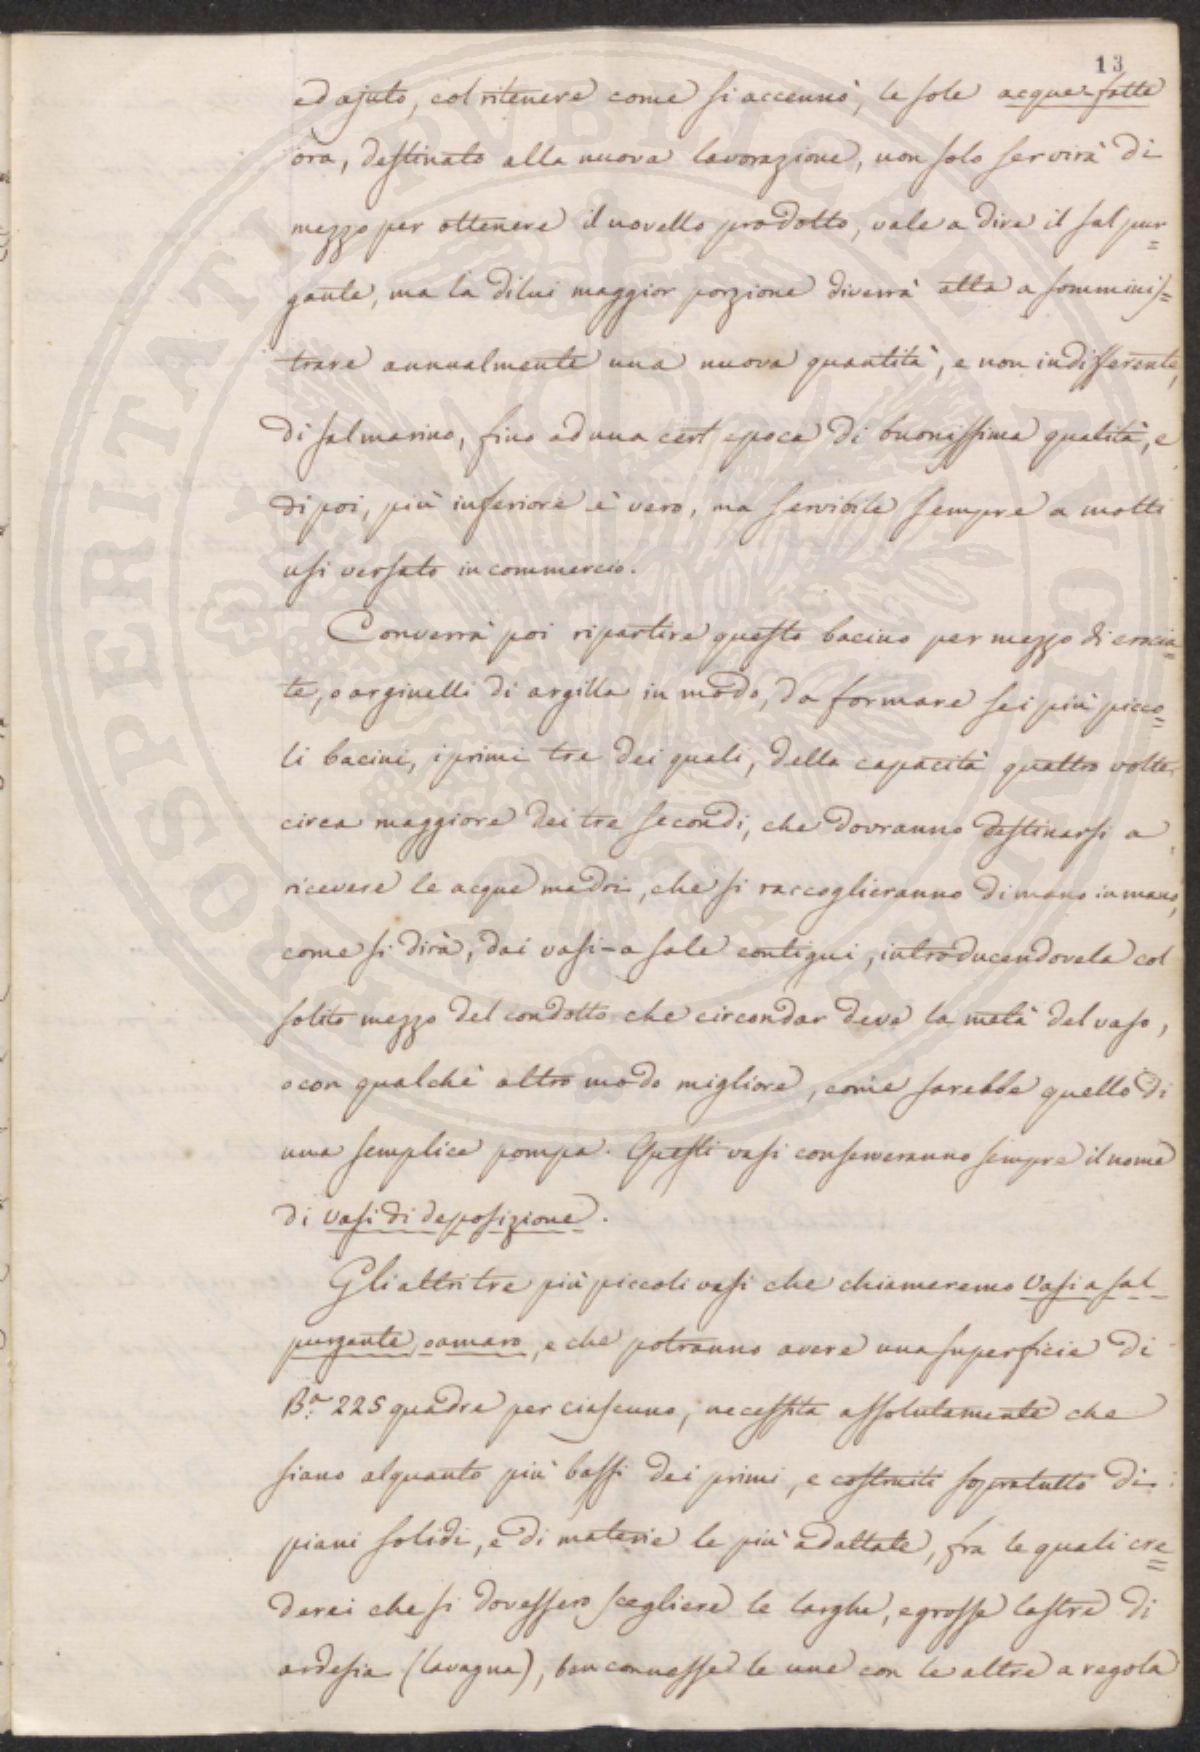 13
ed ajuto, col ritenere come si accennò, le sole acque fatte
ora, destinato alla nuova lavorazione, non solo servirà di
mezzo per ottenere il novello prodotto, vale a dire il sal pur=
gante, ma la di lui maggior porzione diverrà atta a sommini=
trare annualmente una nuova quantità, e non indifferente,
di sal marino, fino ad una cert epoca di buonissima qualità, e
di poi, più inferiore è vero, ma servibile sempre a molti
usi versato in commercio.
Converrà poi ripartire questo bacino per mezzo di crocia=
te, o arginelli di argilla in modo, da formare sei più picco=
li bacini, i primi tre dei quali, della capacità quattro volte
circa maggiore dei tre secondi, che dovranno destinarsi a
ricevere le acque madri, che si raccoglieranno di mano in mano,
come si dirà, dai vasi-a sale contigui, introducendovela col
solito mezzo del condotto che circondar deve la metà del vaso,
o con qualche altro modo migliore, come sarebbe quello di
una semplice pompa. Questi vasi conserveranno sempre il nome
di vasi di deposizione.
Gli altri tre più piccoli vasi che chiameremo Vasi a sal-
purgante, o amaro, e che potranno avere una superficie di
Bª. 225 quadre per ciascuno, necessita assolutamente che
siano alquanto più bassi dei primi, e costruiti sopratutto di
piani solidi, e di materie le più adattate, fra le quali cre=
derei che si dovessero scegliere le larghe, e grosse lastre di
ardesia (lavagna), ben connesse le une con le altre a regola